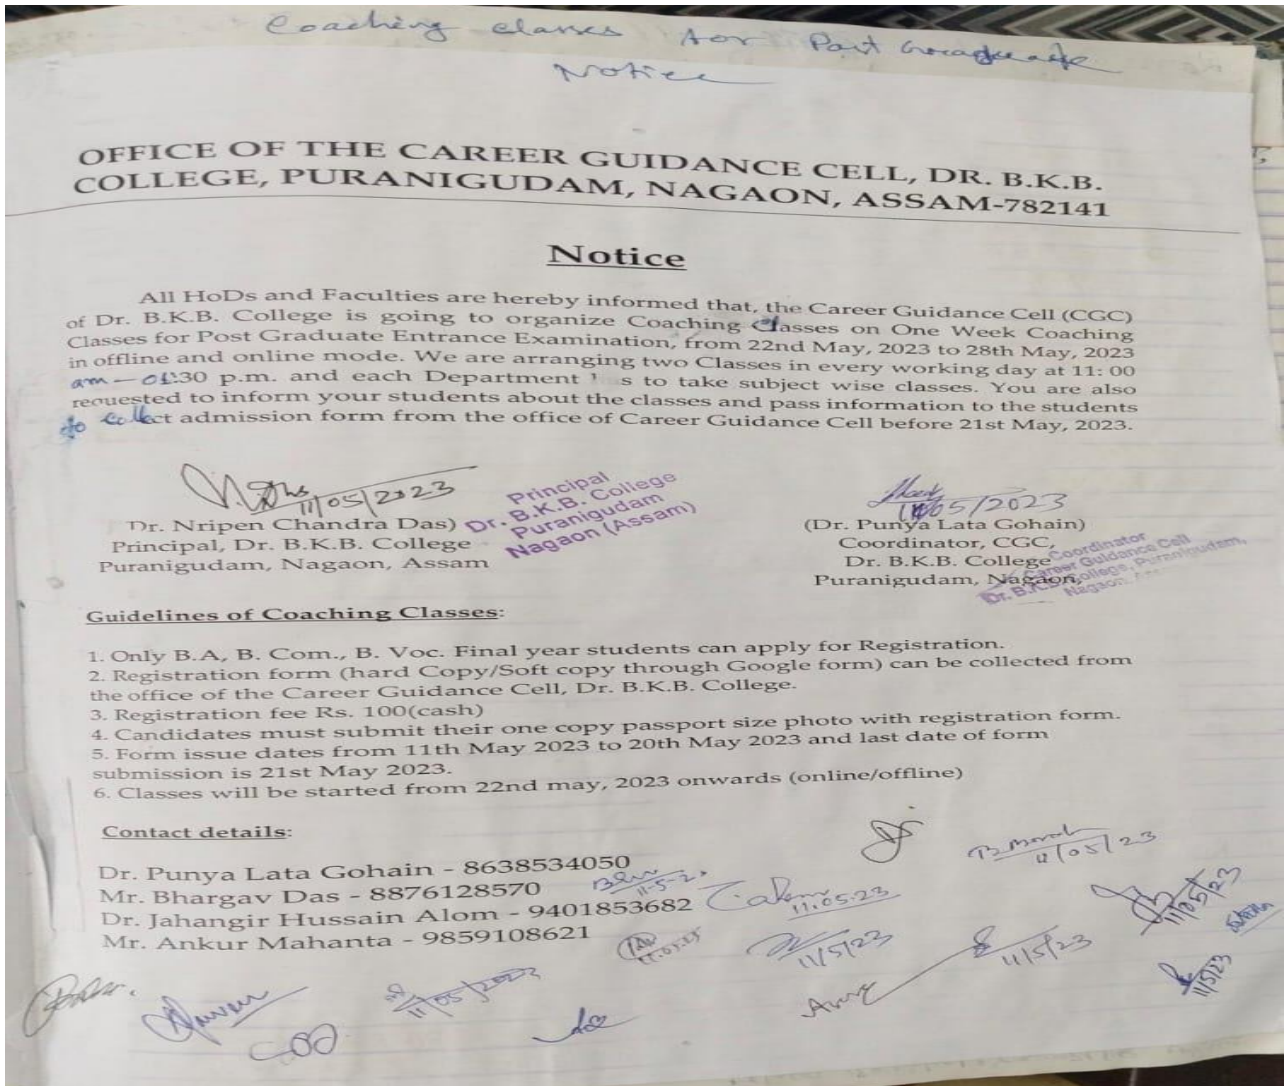 Coaching classes for Post Graduate
Notice
OFFICE OF THE CAREER GUIDANCE CELL, DR. B.K.B.
COLLEGE, PURANIGUDAM, NAGAON, ASSAM-782141
Notice
All HoDs and Faculties are hereby informed that, the Career Guidance Cell (CGC)
of Dr. B.K.B. College is going to organize Coaching Classes on One Week Coaching
Classes for Post Graduate Entrance Examination, from 22nd May, 2023 to 28th May, 2023
in offline and online mode. We are arranging two Classes in every working day at 11: 00
am - 01:30 p.m. and each Department s to take subject wise classes. You are also
requested to inform your students about the classes and pass information to the students
to collect admission form from the office of Career Guidance Cell before 21st May, 2023.
11/05/2023
Principal
Dr. B.K.B. College
Puranigudam
Nagaon (Assam)
Dr. Nripen Chandra Das)
Principal, Dr. B.K.B. College
Puranigudam, Nagaon, Assam
11/05/2023
(Dr. Punya Lata Gohain)
Coordinator, CGC,
Dr. B.K.B. College
Puranigudam, Nagaon,
Coordinator
Career Guidance Cell
Dr. B.K.B. College, Puranigudam,
Nagaon,
Guidelines of Coaching Classes:
1. Only B.A, B. Com., B. Voc. Final year students can apply for Registration.
2. Registration form (hard Copy/Soft copy through Google form) can be collected from
the office of the Career Guidance Cell, Dr. B.K.B. College.
3. Registration fee Rs. 100(cash)
4. Candidates must submit their one copy passport size photo with registration form.
5. Form issue dates from 11th May 2023 to 20th May 2023 and last date of form
submission is 21st May 2023.
6. Classes will be started from 22nd may, 2023 onwards (online/offline)
Contact details:
Dr. Punya Lata Gohain - 8638534050
Mr. Bhargav Das - 8876128570
Dr. Jahangir Hussain Alom - 9401853682
Mr. Ankur Mahanta - 9859108621
11/05/23
11.05.23
11/05/23
11/5/23
11/5/23
11/5/23
11/05/2023